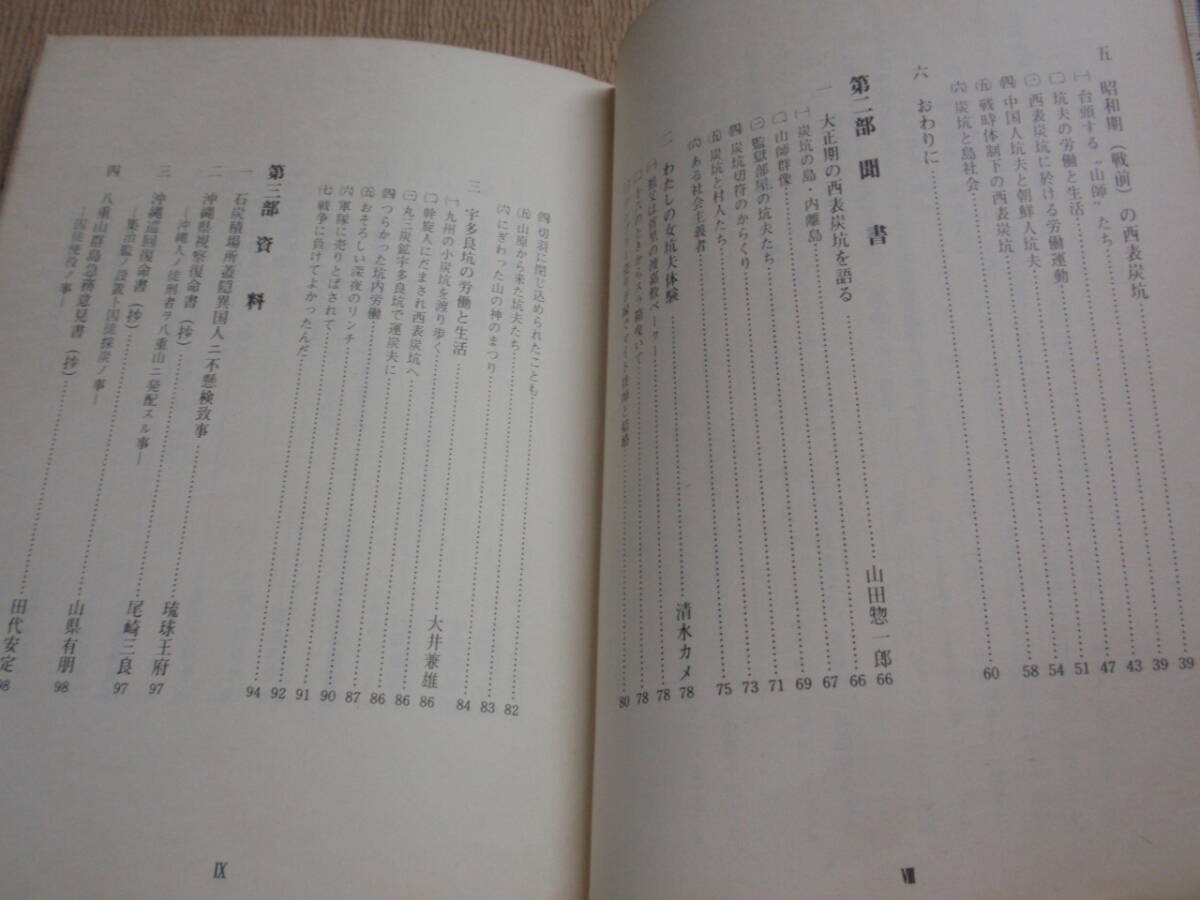 五　昭和期（戦前）の西表炭坑……39
㈠台頭する“山師”たち……39
㈡坑夫の労働と生活……43
㈢西表炭坑に於ける労働運動……47
㈣中国人坑夫と朝鮮人坑夫……51
㈤戦時体制下の西表炭坑……54
㈥炭坑と島社会……58
六　おわりに……60
第二部　聞書
一　大正期の西表炭坑を語る……山田惣一郎 66
㈠炭坑の島・内離島……66
㈡山師群像……67
㈢監獄部屋の坑夫たち……69
㈣炭坑切符のからくり……71
㈤炭坑と村人たち……73
㈥ある社会主義者……75
二　わたしの女坑夫体験……清水カメ 78
㈠……78
㈡……78
㈢……80
Ⅷ
㈣切羽に閉じ込められたことも……82
㈤山原から来た坑夫たち……83
㈥にぎわった山の神のまつり……84
三　宇多良坑の労働と生活……大井兼雄 86
㈠九州の小炭坑を渡り歩く……86
㈡斡旋人にだまされ西表炭坑へ……86
㈢丸三炭鉱宇多良坑で運炭夫に……87
㈣つらかった坑内労働……90
㈤おそろしい深夜のリンチ……91
㈥軍隊に売りとばされて……92
㈦戦争に負けてよかったんだ……94
第三部　資料
一　石炭積場所蓋隠異国人ニ不懸検致事……琉球王府 97
二　沖縄県視察復命書（抄）……尾崎三良 97
―沖縄人ノ徒刑者ヲ八重山ニ発配スル事―
三　沖縄巡回復命書（抄）……山県有朋 98
―集治監ノ設置ト囚徒採炭ノ事―
四　八重山群島急務意見書（抄）……田代安定 98
―囚徒使役ノ事―
Ⅸ